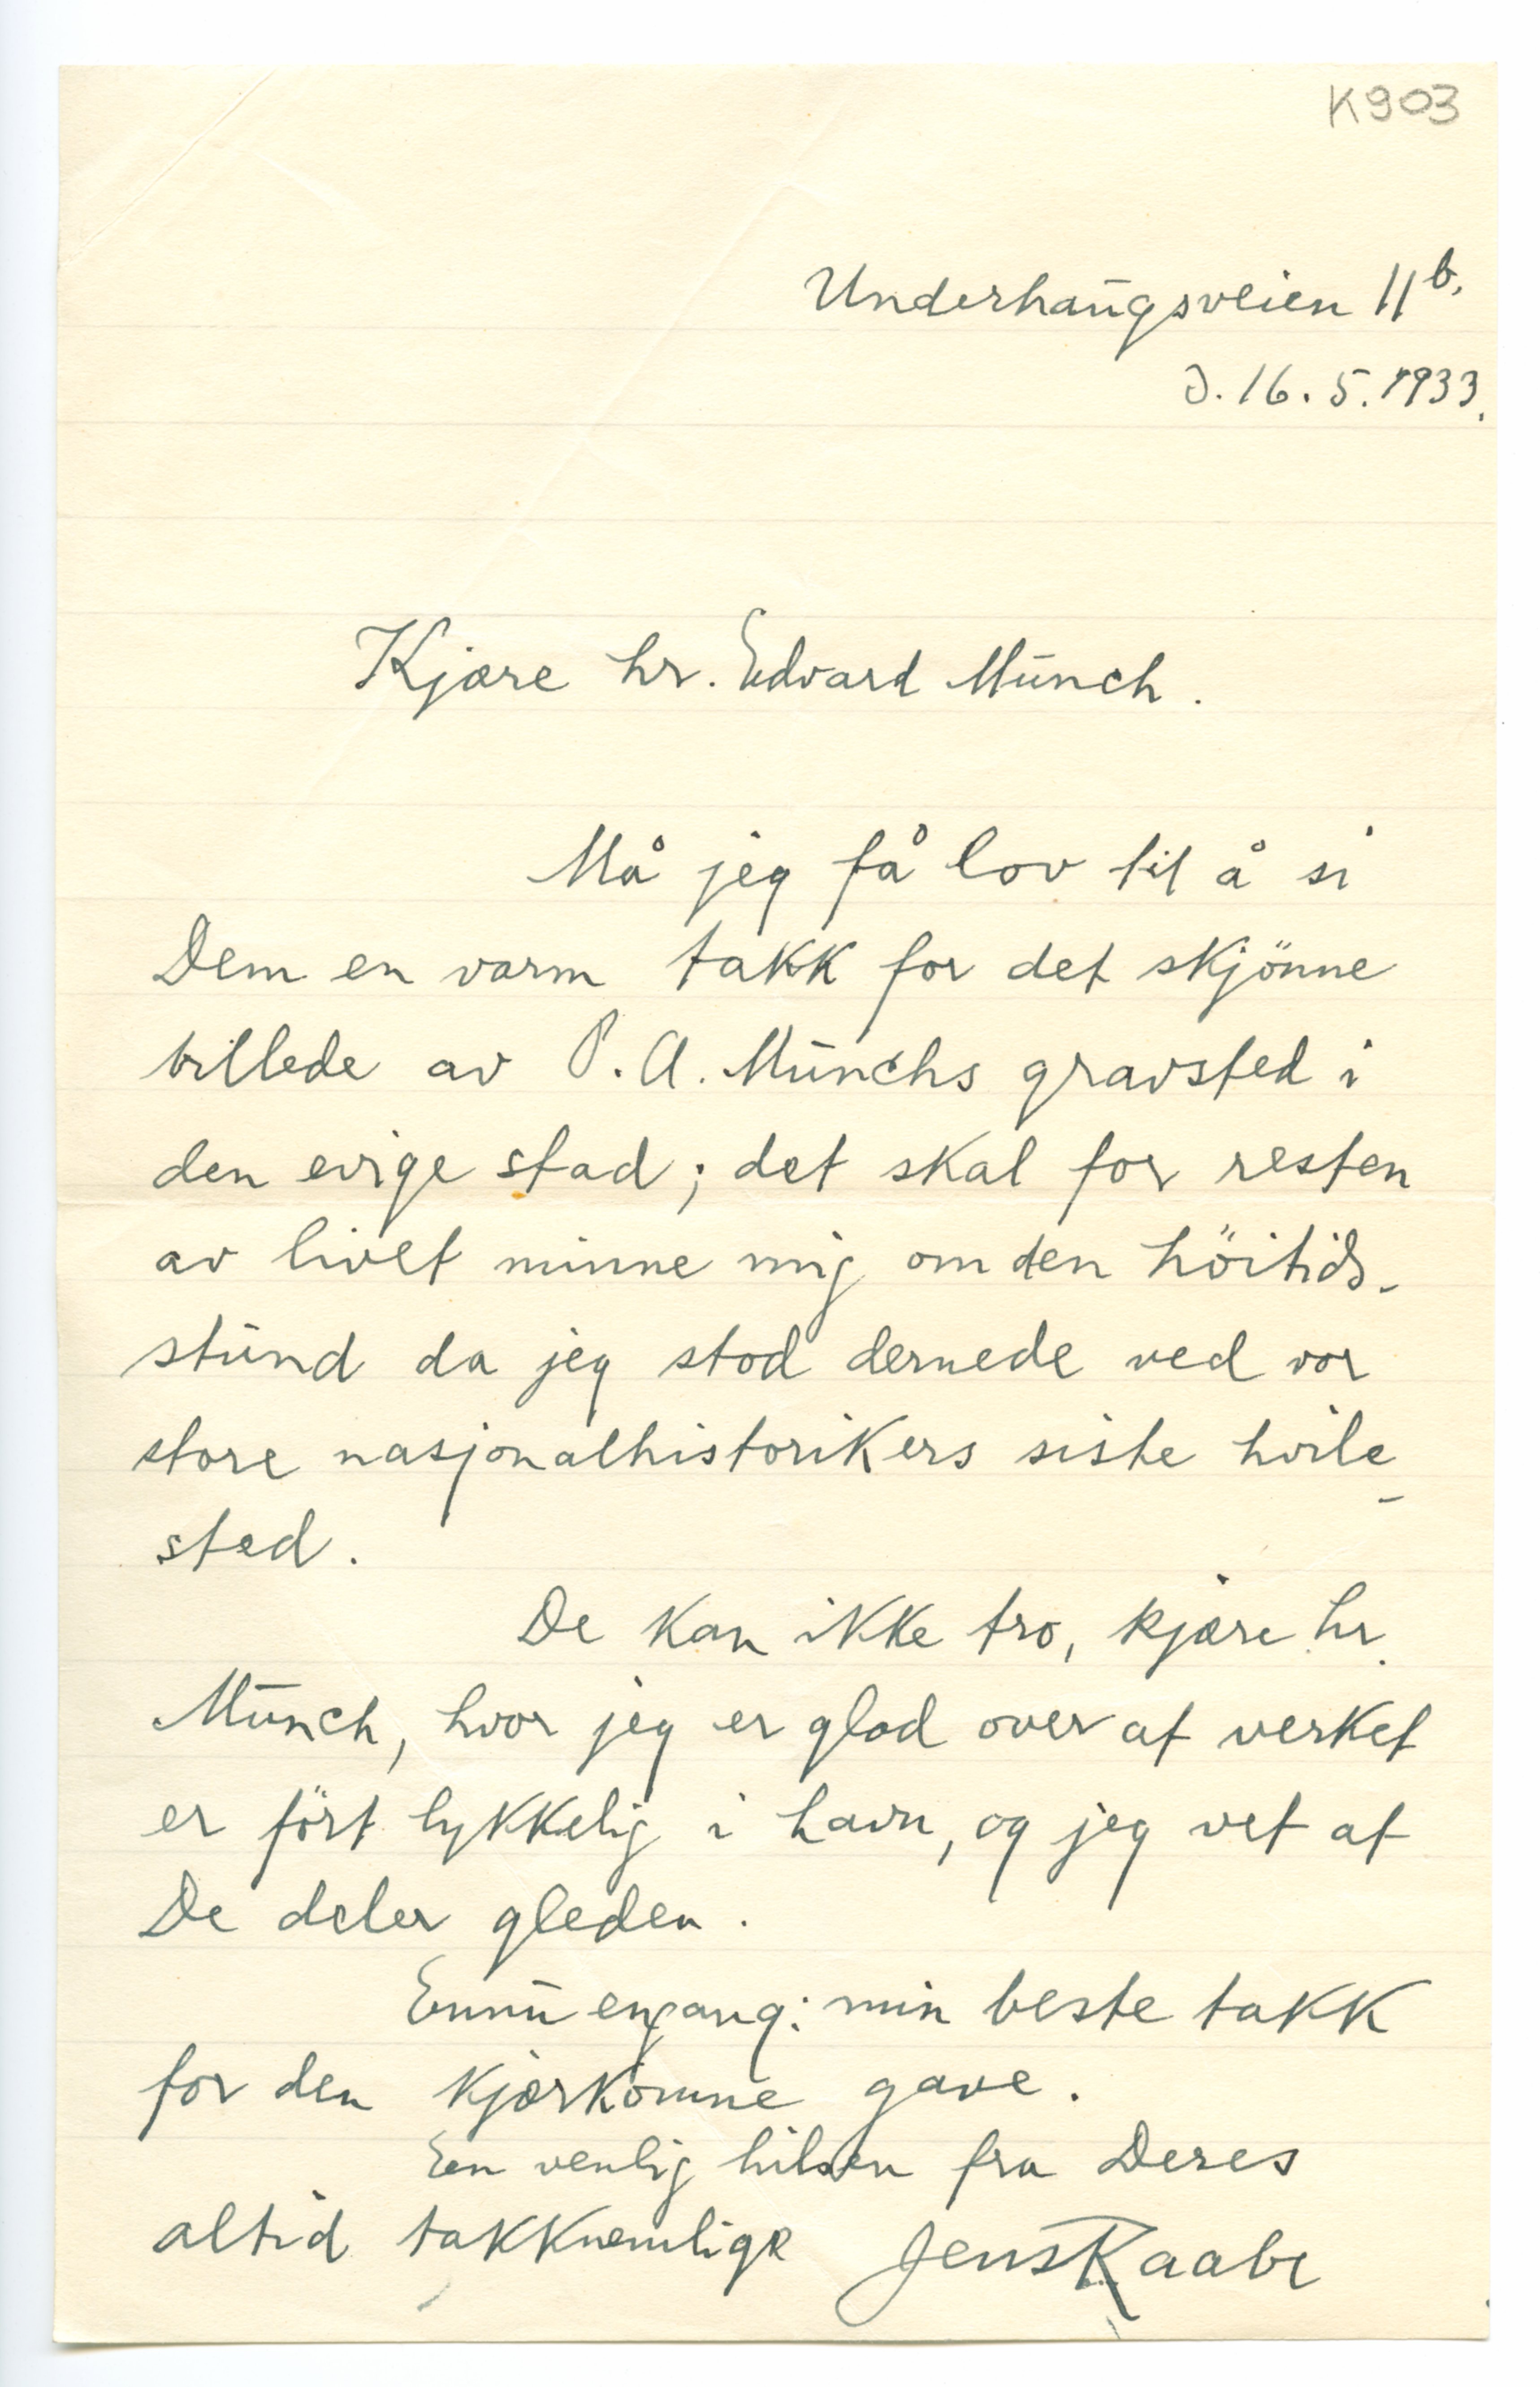 K903
Underhaugsveien 11b.
d. 16.5.1933.
Kjære hr. Edvard Munch.
Må jeg få lov til å si
Dem en varm takk for det skjönne
billede av P. A. Munchs gravsted i
den evige stad; det skal for resten
av livet minne mig om den höitids-
stund da jeg stod dernede ved vor
store nasjonalhistorikers siste hvile-
sted.
De kan ikke tro, kjære hr.
Munch, hvor jeg er glad over at verket
er fört lykkelig i havn, og jeg vet at
De deler gleden.
Ennu engang: min beste takk
for den kjærkomne gave.
En venlig hilsen fra Deres
altid takknemlige Jens Raabe